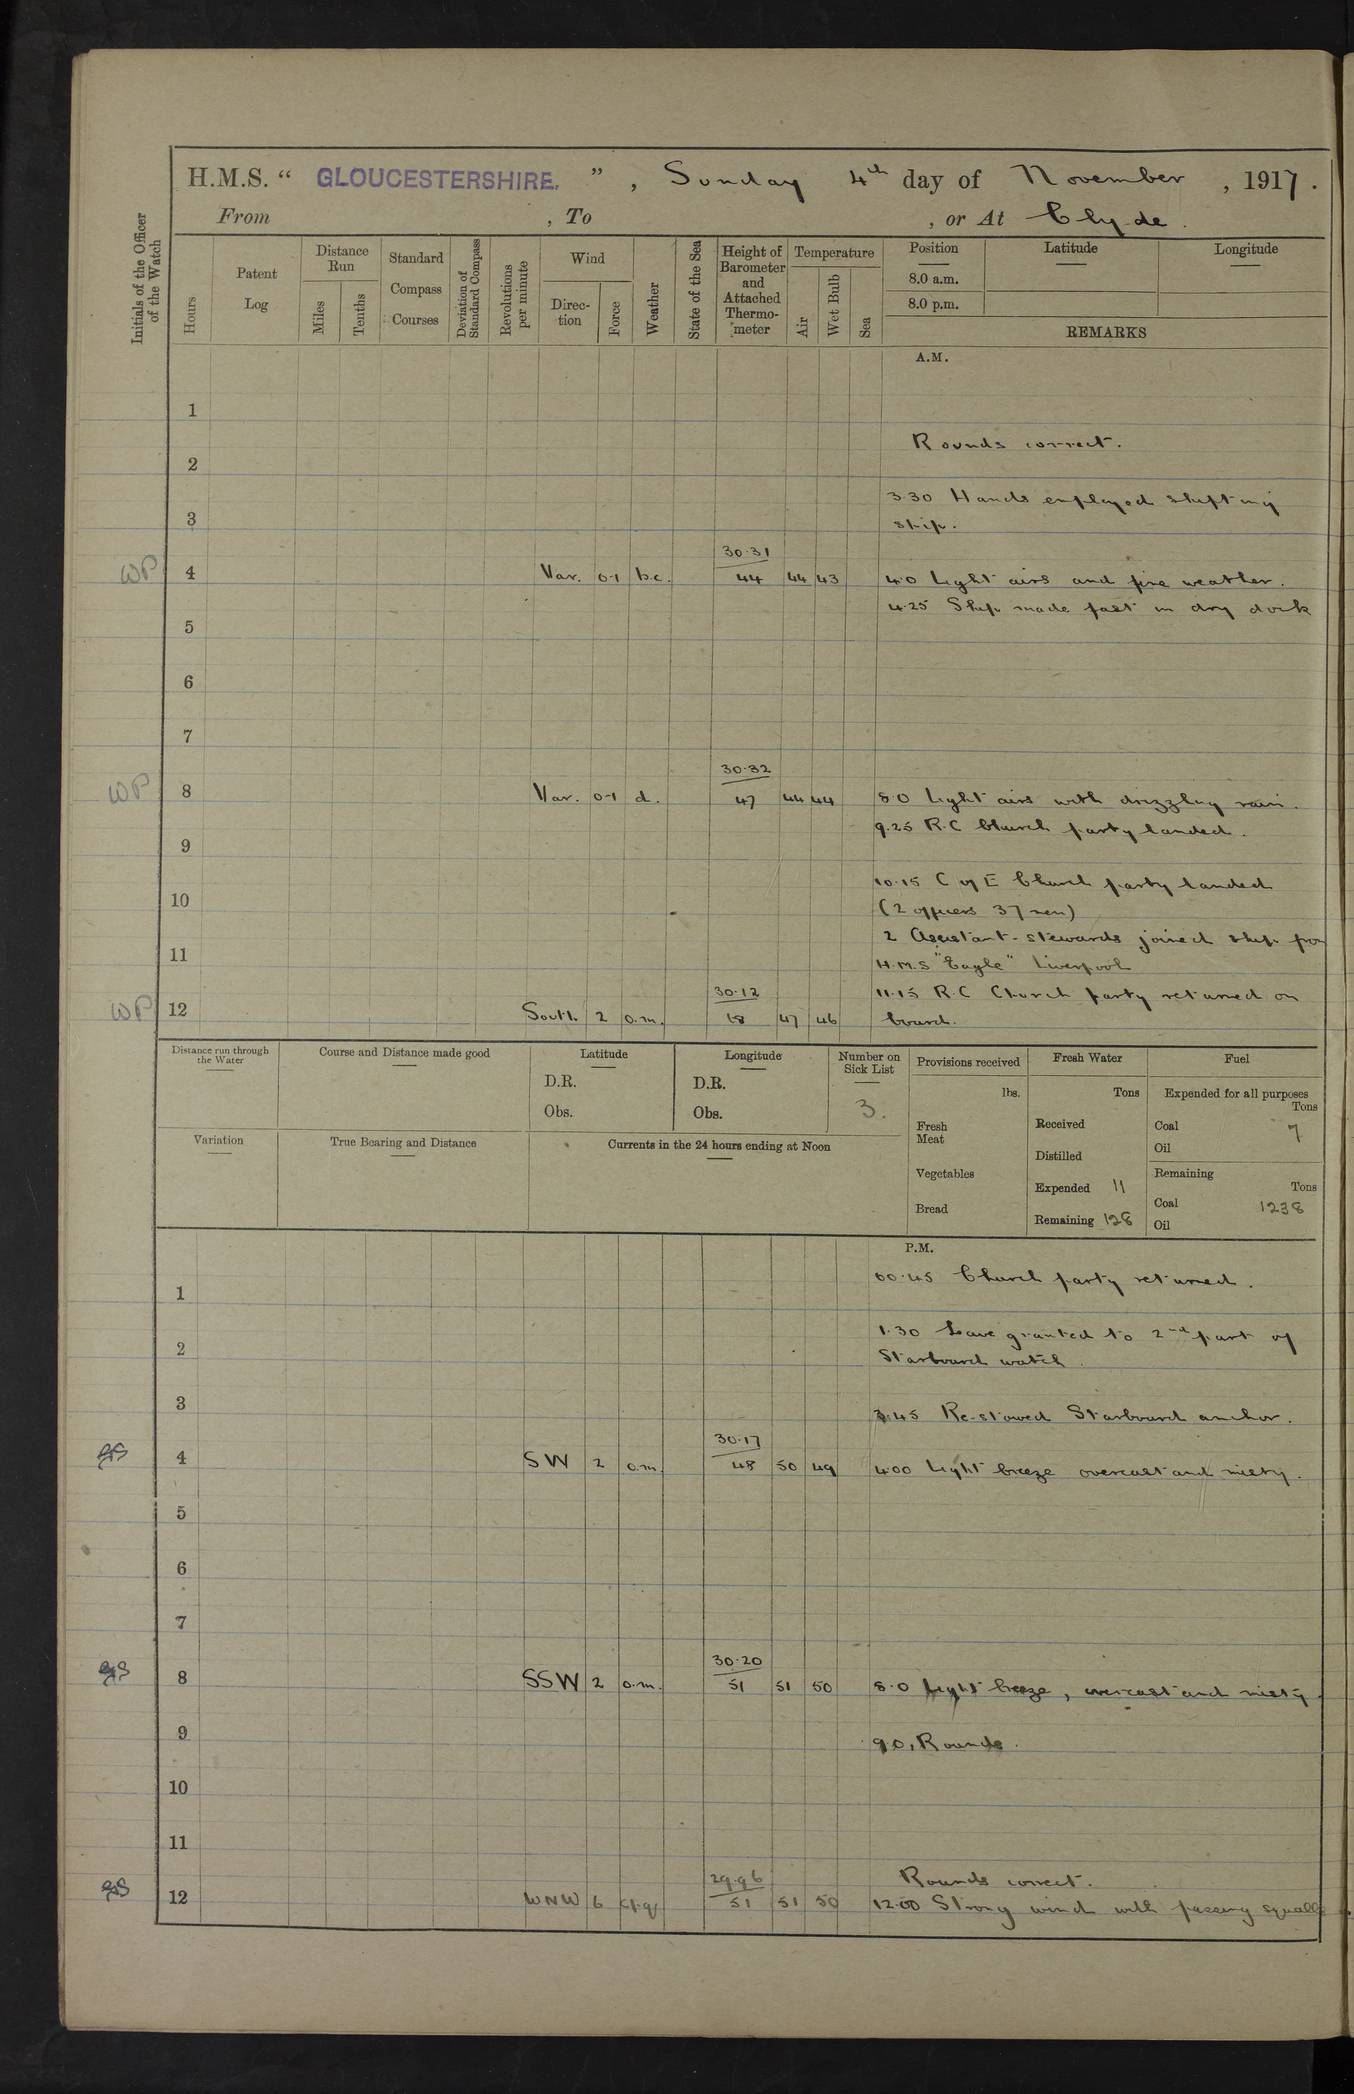 H.M.S. " GLOUCESTERSHIRE. " , Sunday 4th day of November , 1917 .
From , To , or At Clyde .
Initials of the Officer of the Watch
Hours
Patent Log
Distance Run
Miles
Tenths
Standard Compass Courses
Deviation of Standard Compass
Revolutions per minute
Wind
Direc-tion
Force
Weather
State of the Sea
Height of Barometer and Attached Thermo-meter
Temperature
Air
Wet Bulb
Sea
Position Latitude Longitude
8.0 a.m.
8.0 p.m.
REMARKS
A.M.
1
Rounds correct.
2
3.30 Hands employed shifting
3 ship.
30.31
WP 4 Var. 0-1 b.c. 44 44 43 4.0 Light airs and fine weather.
4.25 Ship made fast in dry dock
5
6
7
30.32
WP 8 Var. 0-1 d. 47 44 44 8.0 Light airs with drizzling rain.
9.25 R.C Church party landed.
9
10.15 C of E Church party landed
10 (2 officers 37 men)
2 Assistant-stewards joined ship from
11 H.M.S "Eagle" Liverpool
30.12 11.15 R.C Church party returned on
WP 12 South 2 o.m. 47 46 board.
Distance run through the Water
Course and Distance made good
Latitude
D.R.
Obs.
Longitude
D.R.
Obs.
Number on Sick List
3.
Provisions received
lbs.
Fresh Meat
Vegetables
Bread
Fresh Water
Tons
Received
Distilled
Expended 11
Remaining 128
Fuel
Expended for all purposes
Tons
Coal 7
Oil
Remaining
Tons
Coal 1238
Oil
Variation
True Bearing and Distance
Currents in the 24 hours ending at Noon
P.M.
00.45 Church party returned.
1
1.30 Leave granted to 2nd part of
2 Starboard watch.
3
3.45 Re-stowed Starboard anchor.
30.17
4 SW 2 o.m. 48 50 49 4.00 Light breeze overcast and misty.
5
6
7
30.20
8 SSW 2 o.m. 51 51 50 8.0 Light breeze, overcast and misty.
9 9.0, Rounds.
10
11
29.96 Rounds correct.
12 WNW 6 51 51 50 12.00 Strong wind with passing squalls